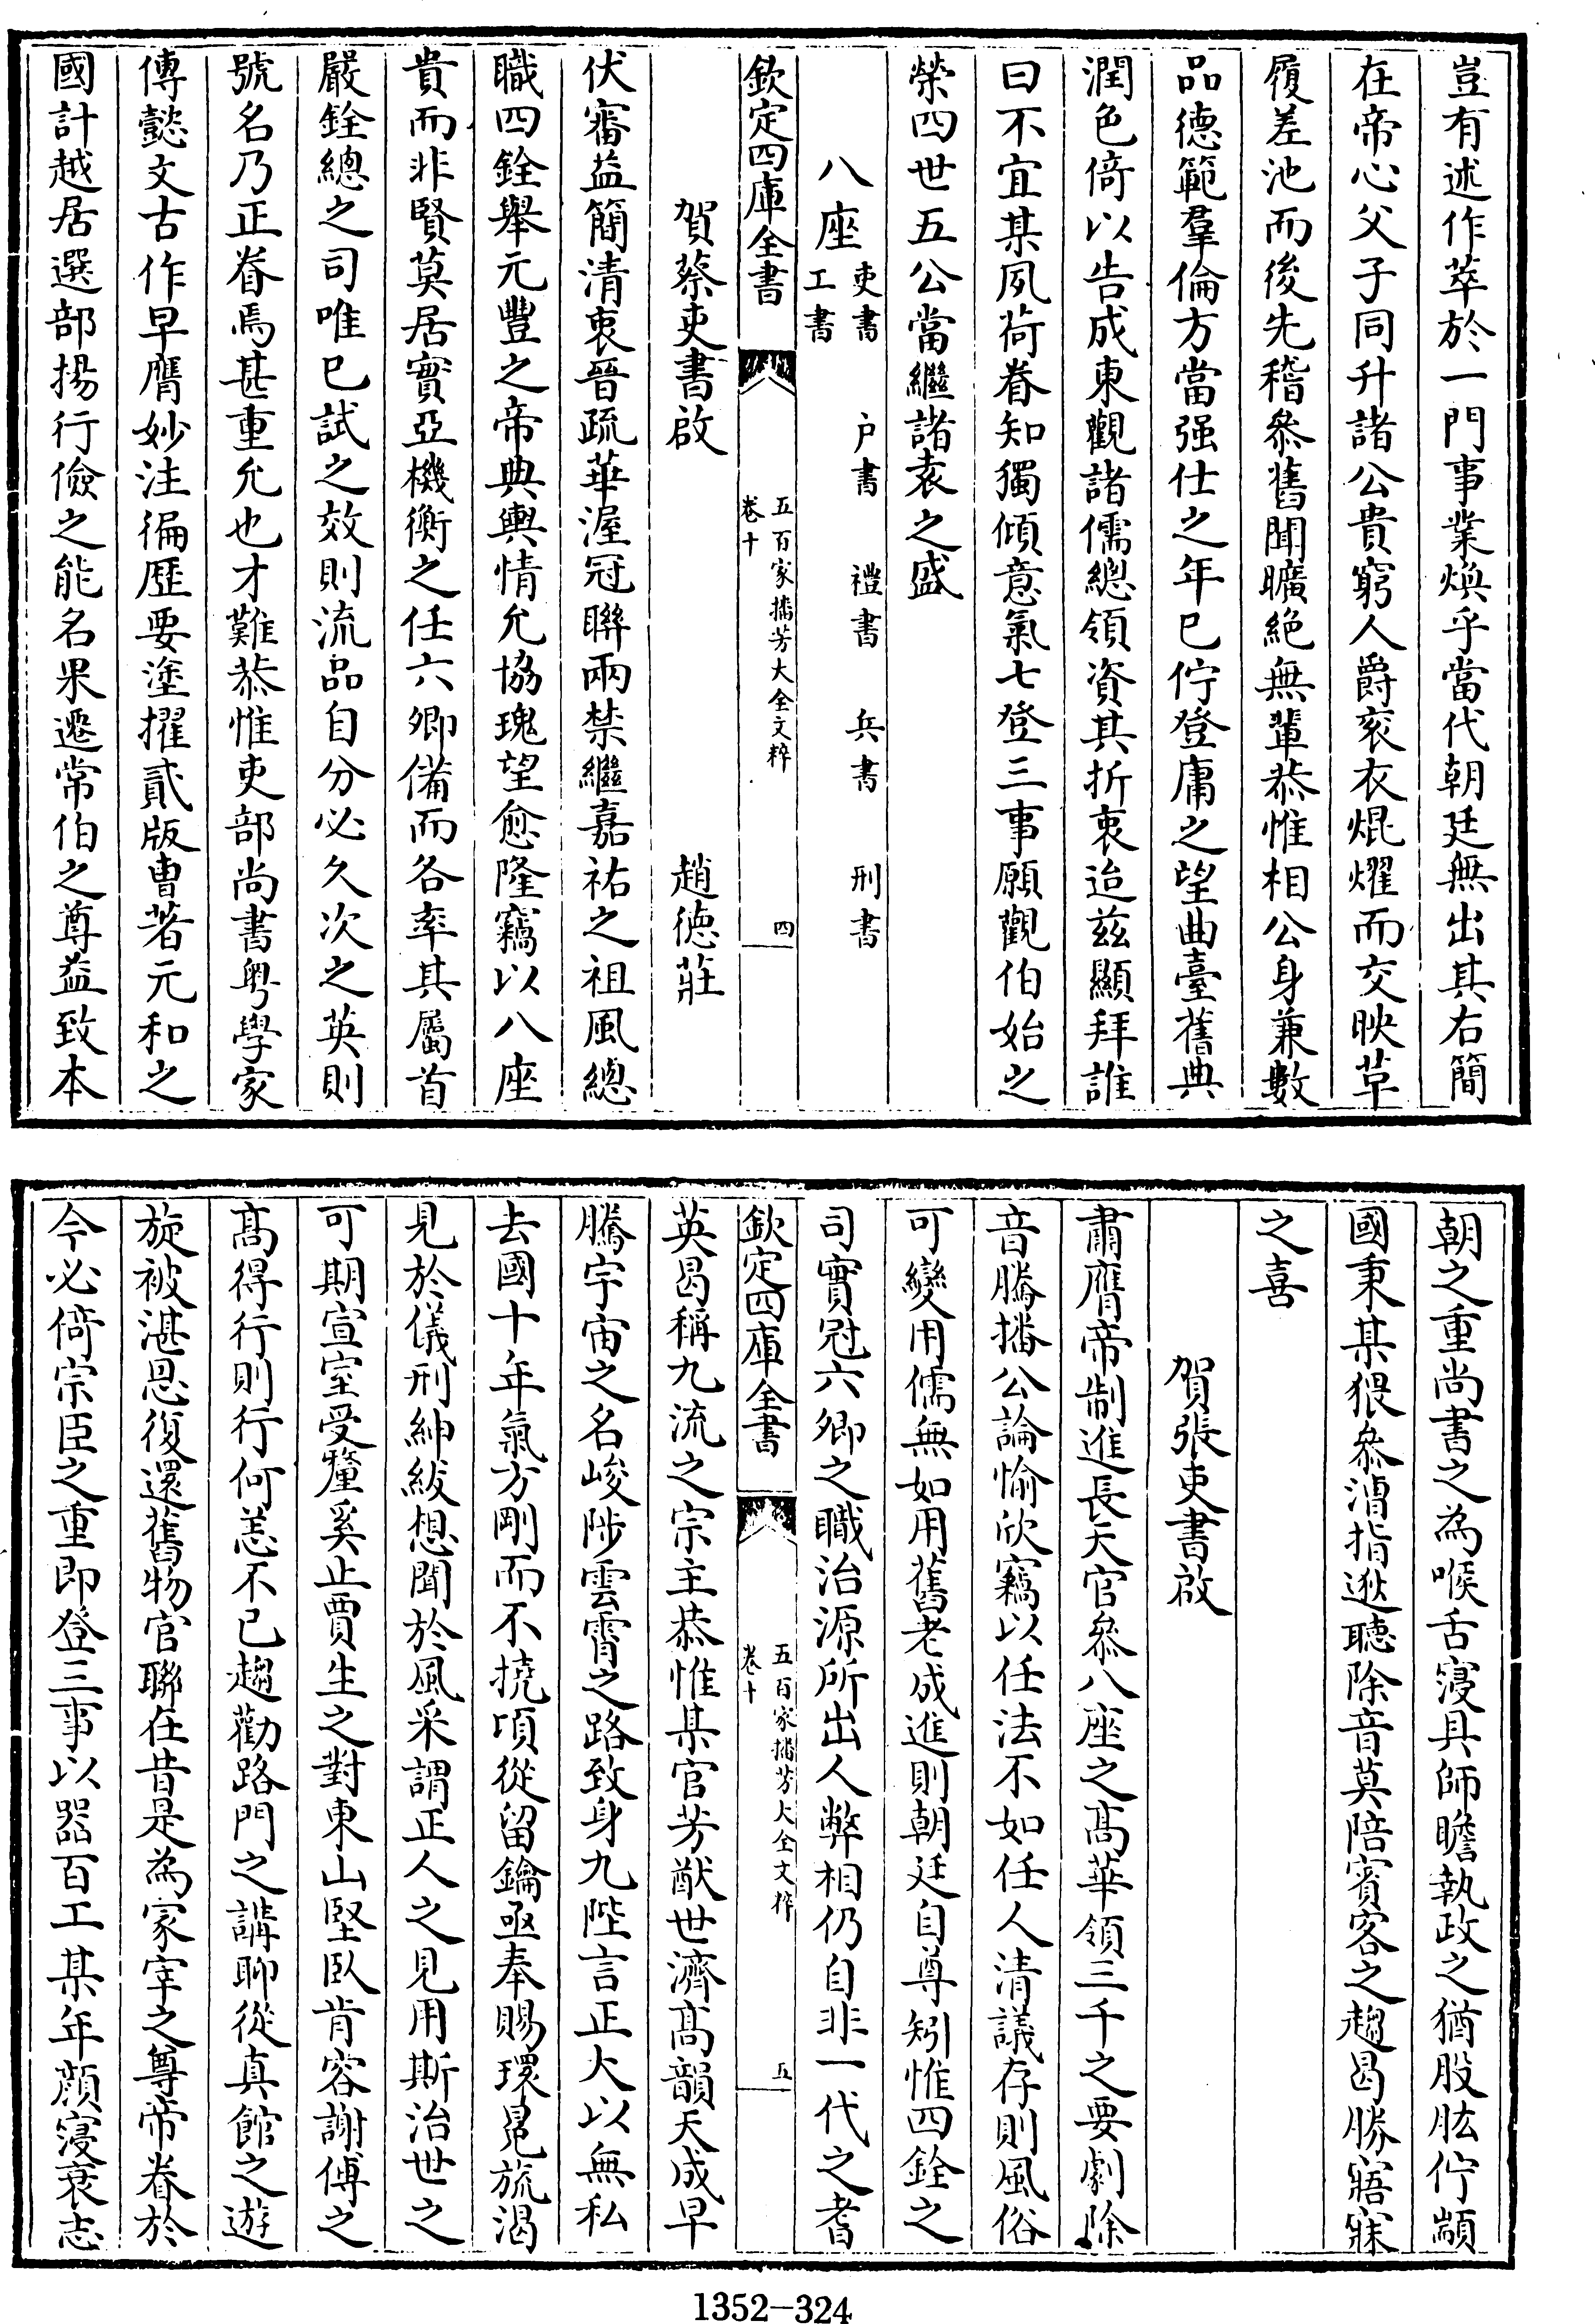 豈有述作萃於一門事業煥乎當代朝廷無出其右簡
在帝心父子同升諸公貴窮人爵衮衣焜燿而交映草
履差池而後先稽叅舊聞曠絶無輩恭惟相公身兼數
品德範羣倫方當强仕之年已佇登庸之望曲臺舊典
潤色倚以告成東觀諸儒總領資其折衷迨兹顯拜誰
曰不宜某夙荷眷知獨傾意氣七登三事願觀伯始之
榮四世五公當繼諸袁之盛
八座吏書 户書 禮書 兵書 刑書
工書
欽定四庫全書
五百家播芳大全文粹
卷十
四
賀蔡吏書啟 趙德莊
伏審益簡清衷晉疏華渥冠聯兩禁繼嘉祐之祖風總
職四銓舉元豐之帝典輿情允協瑰望愈隆竊以八座
貴而非賢莫居實亞機衡之任六卿備而各率其屬首
嚴銓總之司唯已試之效則流品自分必久次之英則
號名乃正眷焉甚重允也才難恭惟吏部尚書粤學家
傳懿文古作早膺妙注徧歷要塗擢貳版曹著元和之
國計越居選部揚行儉之能名果遷常伯之尊益致本
朝之重尚書之為喉舌寖具師瞻執政之猶股肱佇顓
國秉某猥叅㳙指逖聽除音莫陪賓客之趨曷勝寤寐
之喜
賀張吏書啟
肅膺帝制進長天官叅八座之髙華領三千之要劇除
音騰播公論愉欣竊以任法不如任人清議存則風俗
可變用儒無如用舊老成進則朝廷自尊矧惟四銓之
司實冠六卿之職治源所出人弊相仍自非一代之耆
欽定四庫全書
五百家播芳大全文粹
卷十
五
英曷稱九流之宗主恭惟某官芳猷世濟髙韻天成早
騰宇宙之名峻陟雲霄之路致身九陛言正大以無私
去國十年氣方剛而不撓頃從留鑰亟奉賜環冕旒渴
見於儀刑紳紱想聞於風采謂正人之見用斯治世之
可期宣室受釐奚止賈生之對東山堅臥肯容謝傅之
髙得行則行何恙不已趨勸路門之講聊從真館之遊
旋被湛恩復還舊物官聯在昔是為冢宰之尊帝眷於
今必倚宗臣之重即登三事以器百工某年顔寖衰志
1352-324